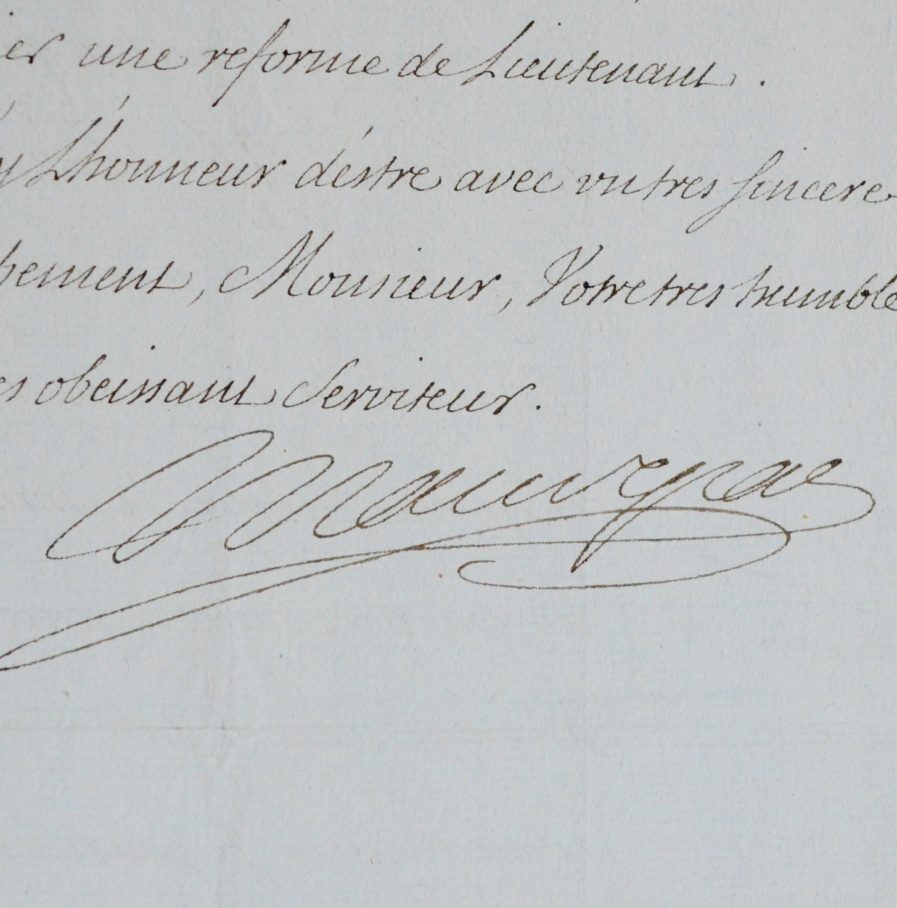 ier une reforme de Lieutenant.
y L'honneur d'éstre avec vn tres sincere
hement, Monsieur, Votre tres humble
es obeissant Serviteur.